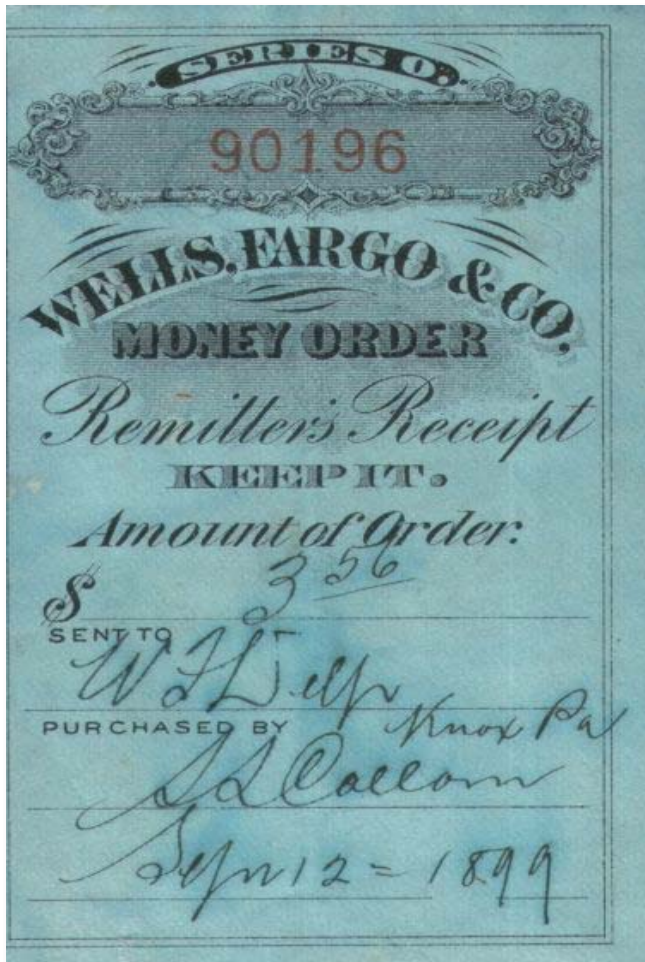 SERIES O.
90196
WELLS, FARGO & CO.
MONEY ORDER
Remitter's Receipt
KEEP IT.
Amount of Order:
$ 3 56
SENT TO
W
PURCHASED BY Knox Pa
S L Collom
12 = 1899